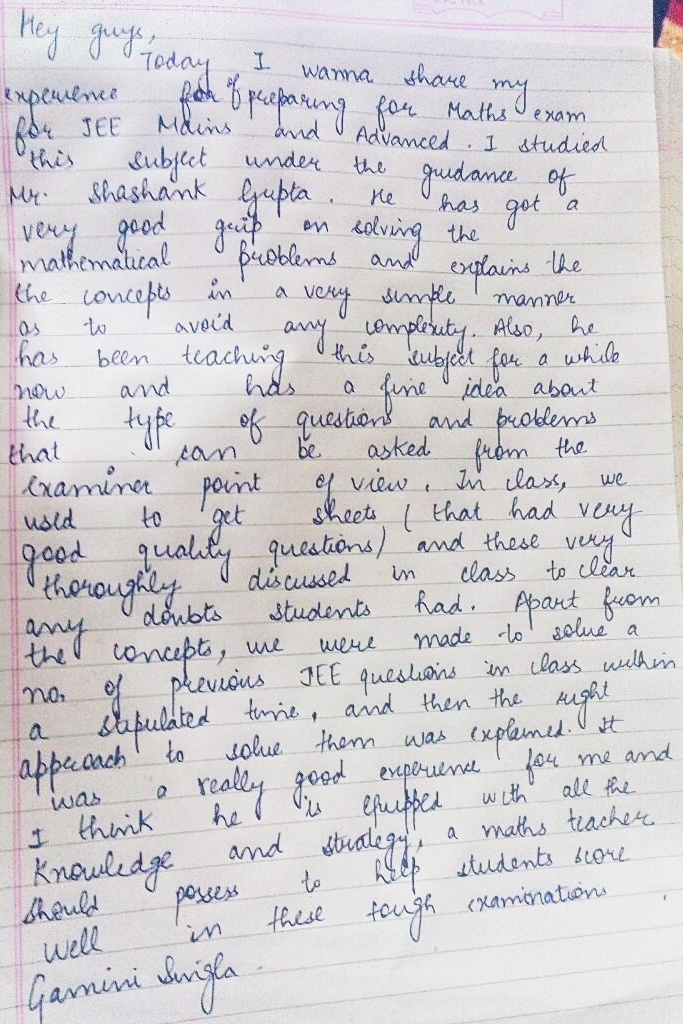 Hey guys,
Today I wanna share my
experience of preparing for Maths exam
for JEE Mains and Advanced. I studied
this subject under the guidance of
Mr. Shashank Gupta. He has got a
very good grip on solving the
mathematical problems and explains the
the concepts in a very simple manner
as to avoid any complexity. Also, he
has been teaching this subject for a while
now and has a fine idea about
the type of questions and problems
that can be asked from the
examiner point of view. In class, we
used to get sheets (that had very
good quality questions) and these very
thoroughly discussed in class to clear
any doubts students had. Apart from
the concepts, we were made to solve a
no. of previous JEE questions in class within
a stipulated time, and then the right
approach to solve them was explained. It
was a really good experience for me and
I think he is equipped with all the
knowledge and strategy, a maths teacher
should possess to help students score
well in these tough examinations.
Gamini Singla.